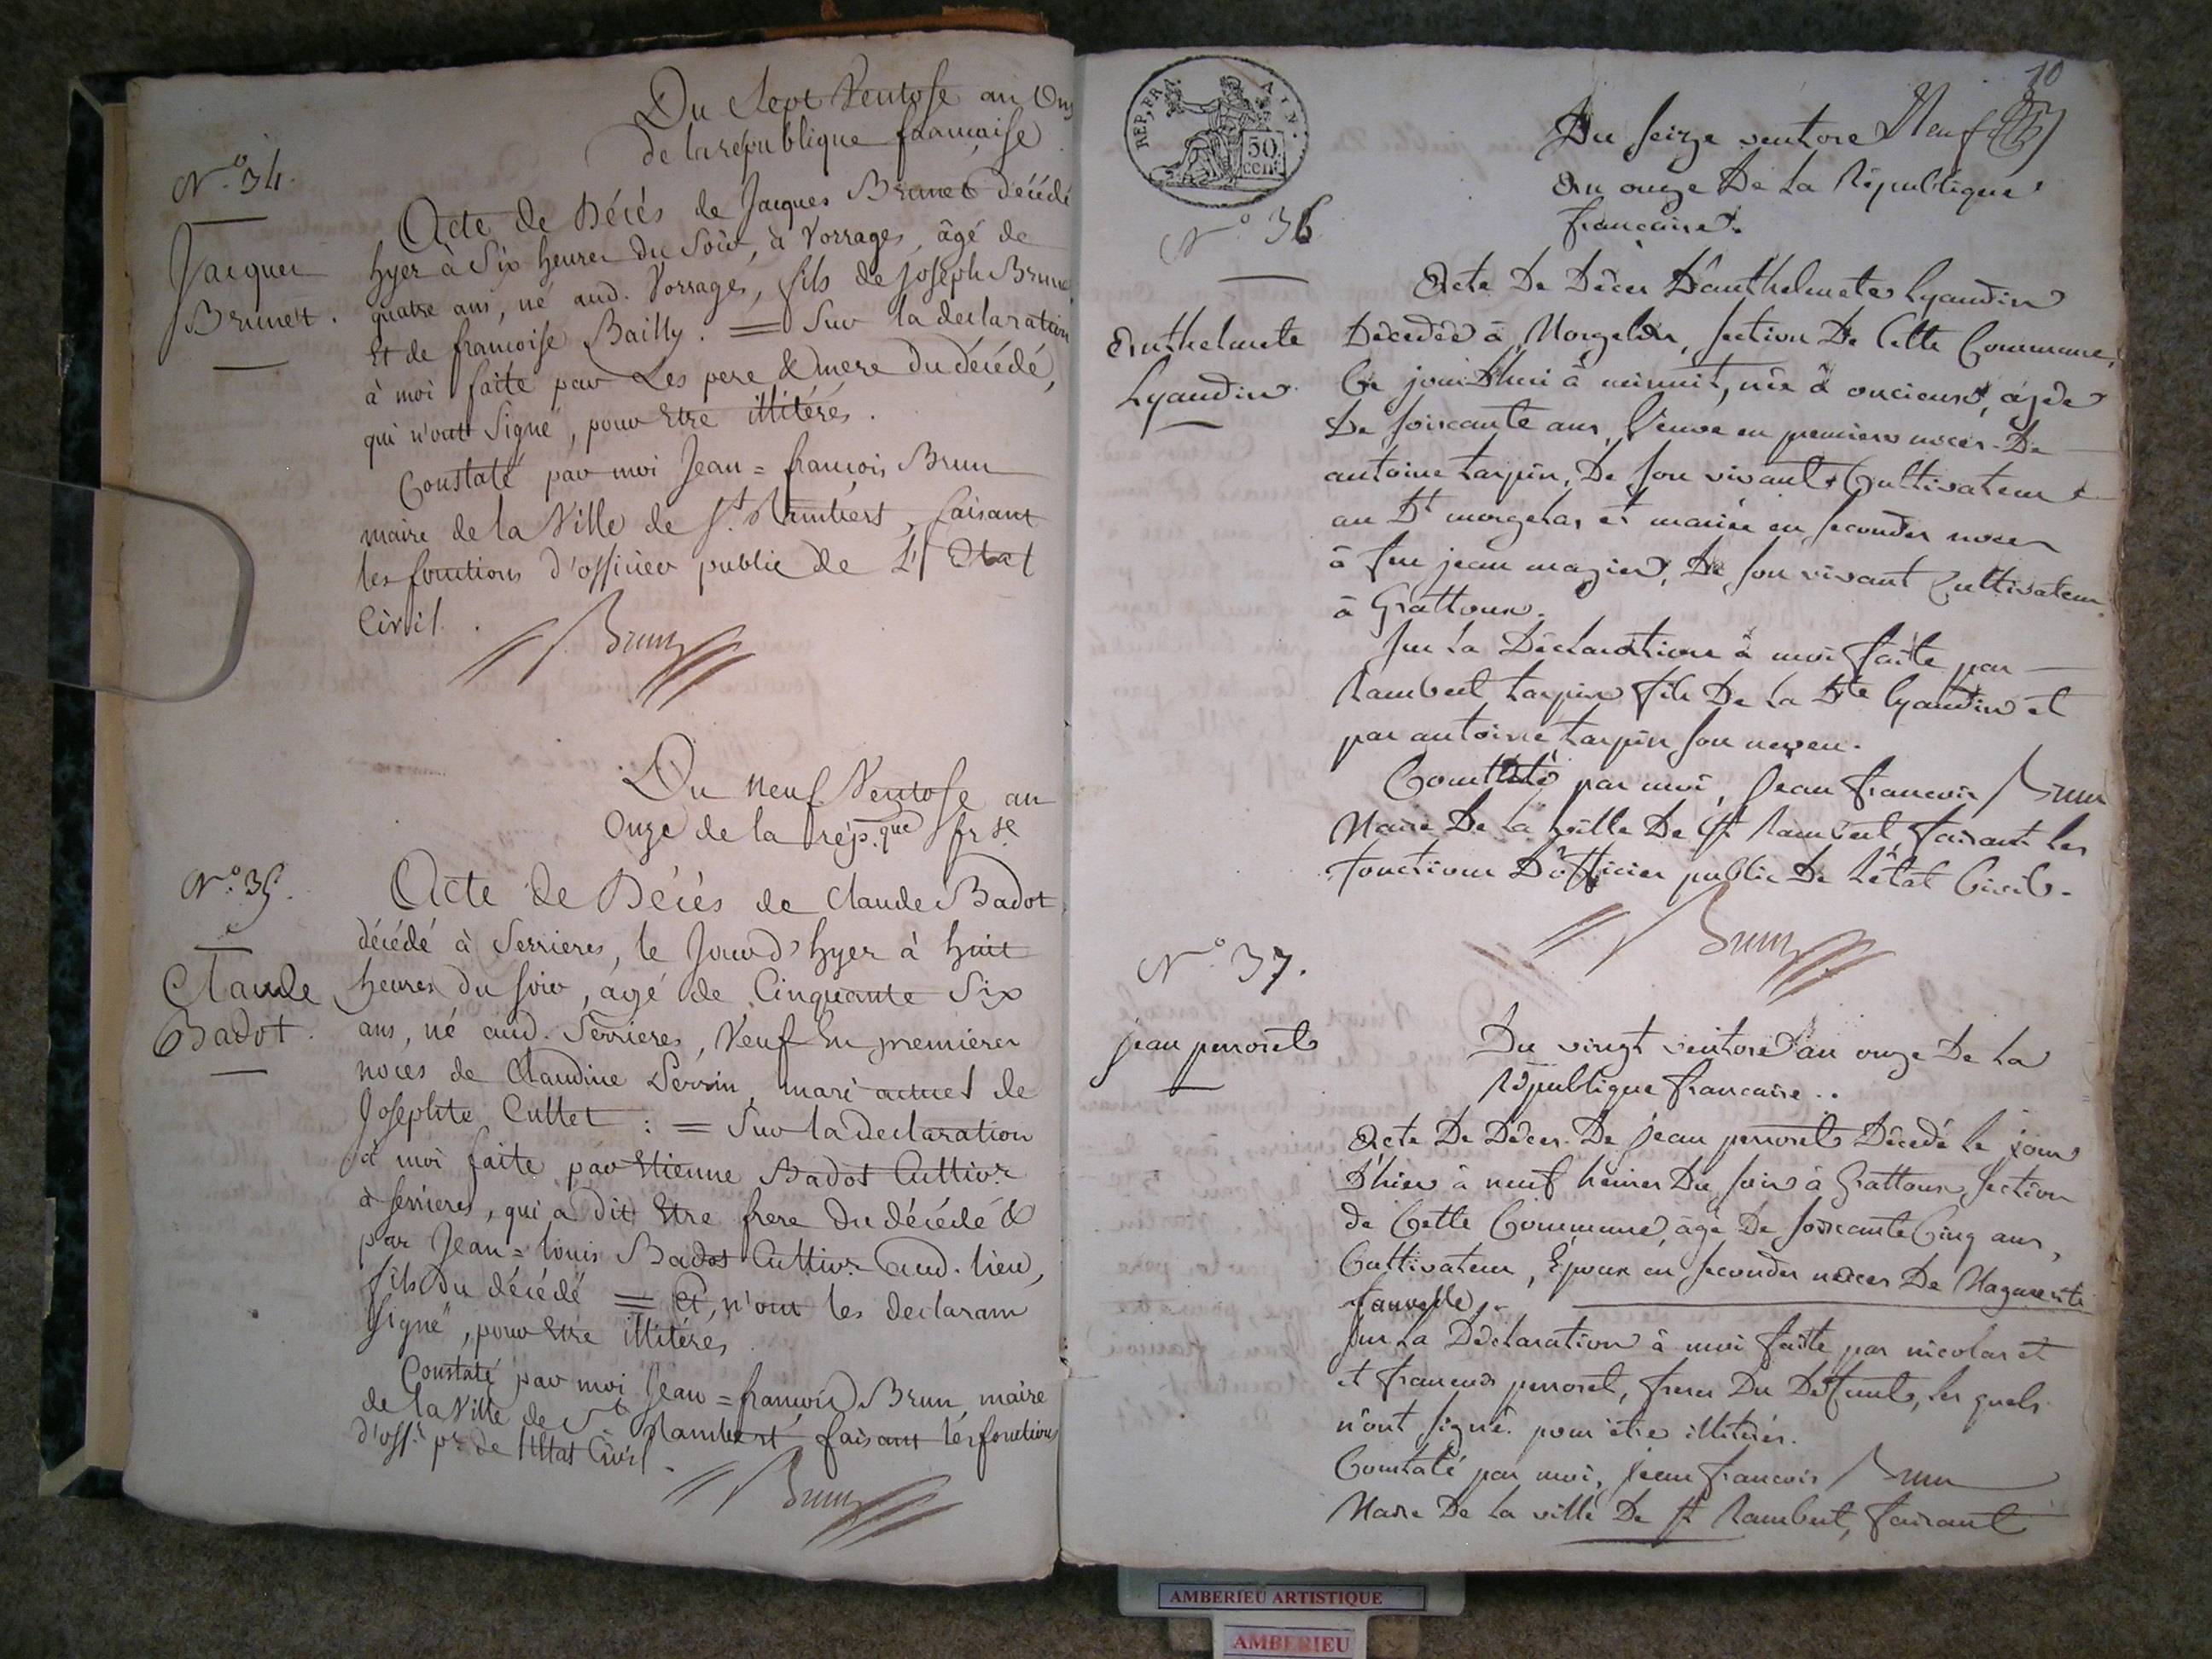 Du Sept Ventose an Onz
de la republique francaise
N.º 34.
Jacques
Brunet.
Acte de Décés de Jacques Brunet décédé
hyer à Six heures du Soir, à Vorrages, âgé de
quatre ans, né aud. Vorrages, fils de Joseph Brunet
et de francoise Bailly. = Sur la declaration
à moi faite par Les pere & mere du décédé,
qui n'ont Signé, pour Etre illitérés.
Constaté par moi Jean = francois Brun
maire de la Ville de St. Rambert, faisant
les fonctions d'officier public de L'Etat
Civil.
Brun
Du neuf Ventose an
Onze de la rép.que fr.se
N.º 35.
Claude
Badot.
Acte de Décés de Claude Badot
décédé à Serrieres, le Jourd'hyer à huit
heures du soir, âgé de Cinquante Six
ans, né aud. Serrieres, Veuf En premieres
noces de Claudine Perrin, mari actuel de
Josephte Cullet : = Sur la declaration
à moi faite par Etienne Badot Cultivr.
à serrieres, qui a dit Etre frere du décédé &
par Jean = louis Badot Cultivr. aud. lieu,
fils du décédé = Et, n'ont les declarans
signé, pour Etre illitérés
Constaté par moi Jean = francois Brun, maire
de la Ville de St Rambert faisant les fonctions
d'offr. pc. de l'Etat Civil.
Brun
10
REP. FRA.
AIN.
50
cent.
Neuf
Du seize ventose
an onze De La République
francaise.
Nº 36
Anthelmete
Lyaudin
Acte De Décès D'anthelmete Lyaudin
Décedée à Morgelas, section De Cette Commune,
Ce jourd'hui à minuit, née à oncieux, agée
De soixante ans, Veuve en premiere noces De
antoine tarpin, De son vivant Cultivateur
au Dt morgelas, et mariée en secondes noces
à feu jean magier, De son vivant Cultivateur
à Grattoux.
Sur La Déclaration à moi faite par
Rambert tarpin fils De La Dte Lyaudin et
par antoine tarpin son neveu.
Constaté par moi, Jean francois Brun
Maire De La ville De St Rambert, faisant les
fonctions D'officier public De L'état Civil.
Brun
Nº 37.
jean perroset
Du vingt ventose an onze De La
République francaise..
Acte De Décès De jean perroset Décedé le jour
D'hier à neuf heures Du soir à Grattoux section
de Cette Commune, âgé De soixante Cinq ans,
Cultivateur, Epoux en secondes noces De Magnerite
fauvelle.
Sur La Déclaration à moi faite par nicolas et
et francois perroset, freres Du Deffunt, les quels
n'ont signé pour être illitérés.
Constaté par moi, jean francois Brun
Maire De La ville De St Rambert, faisant
AMBERIEU ARTISTIQUE
AMBERIEU